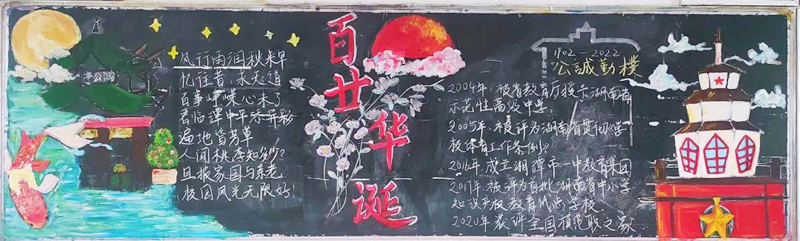 风行雨润秋来早
忆往昔,求天道
百事
君临潭中
遍地皆芳草
人间桃李知多少?
且报家国与春老
校园风光无限好!
百廿华诞
1902-2022
公誠勤樸
2004年,被省教育厅授予湖南省
示范性高级中学。
2005年,被评为湖南省贯彻《学
校体育工作条例》
2016年成立湘潭市一中教育集团
2017年,被评为首批湖南省中小学
知识产权教育试点学校、
2020年获评全国模范职工之家